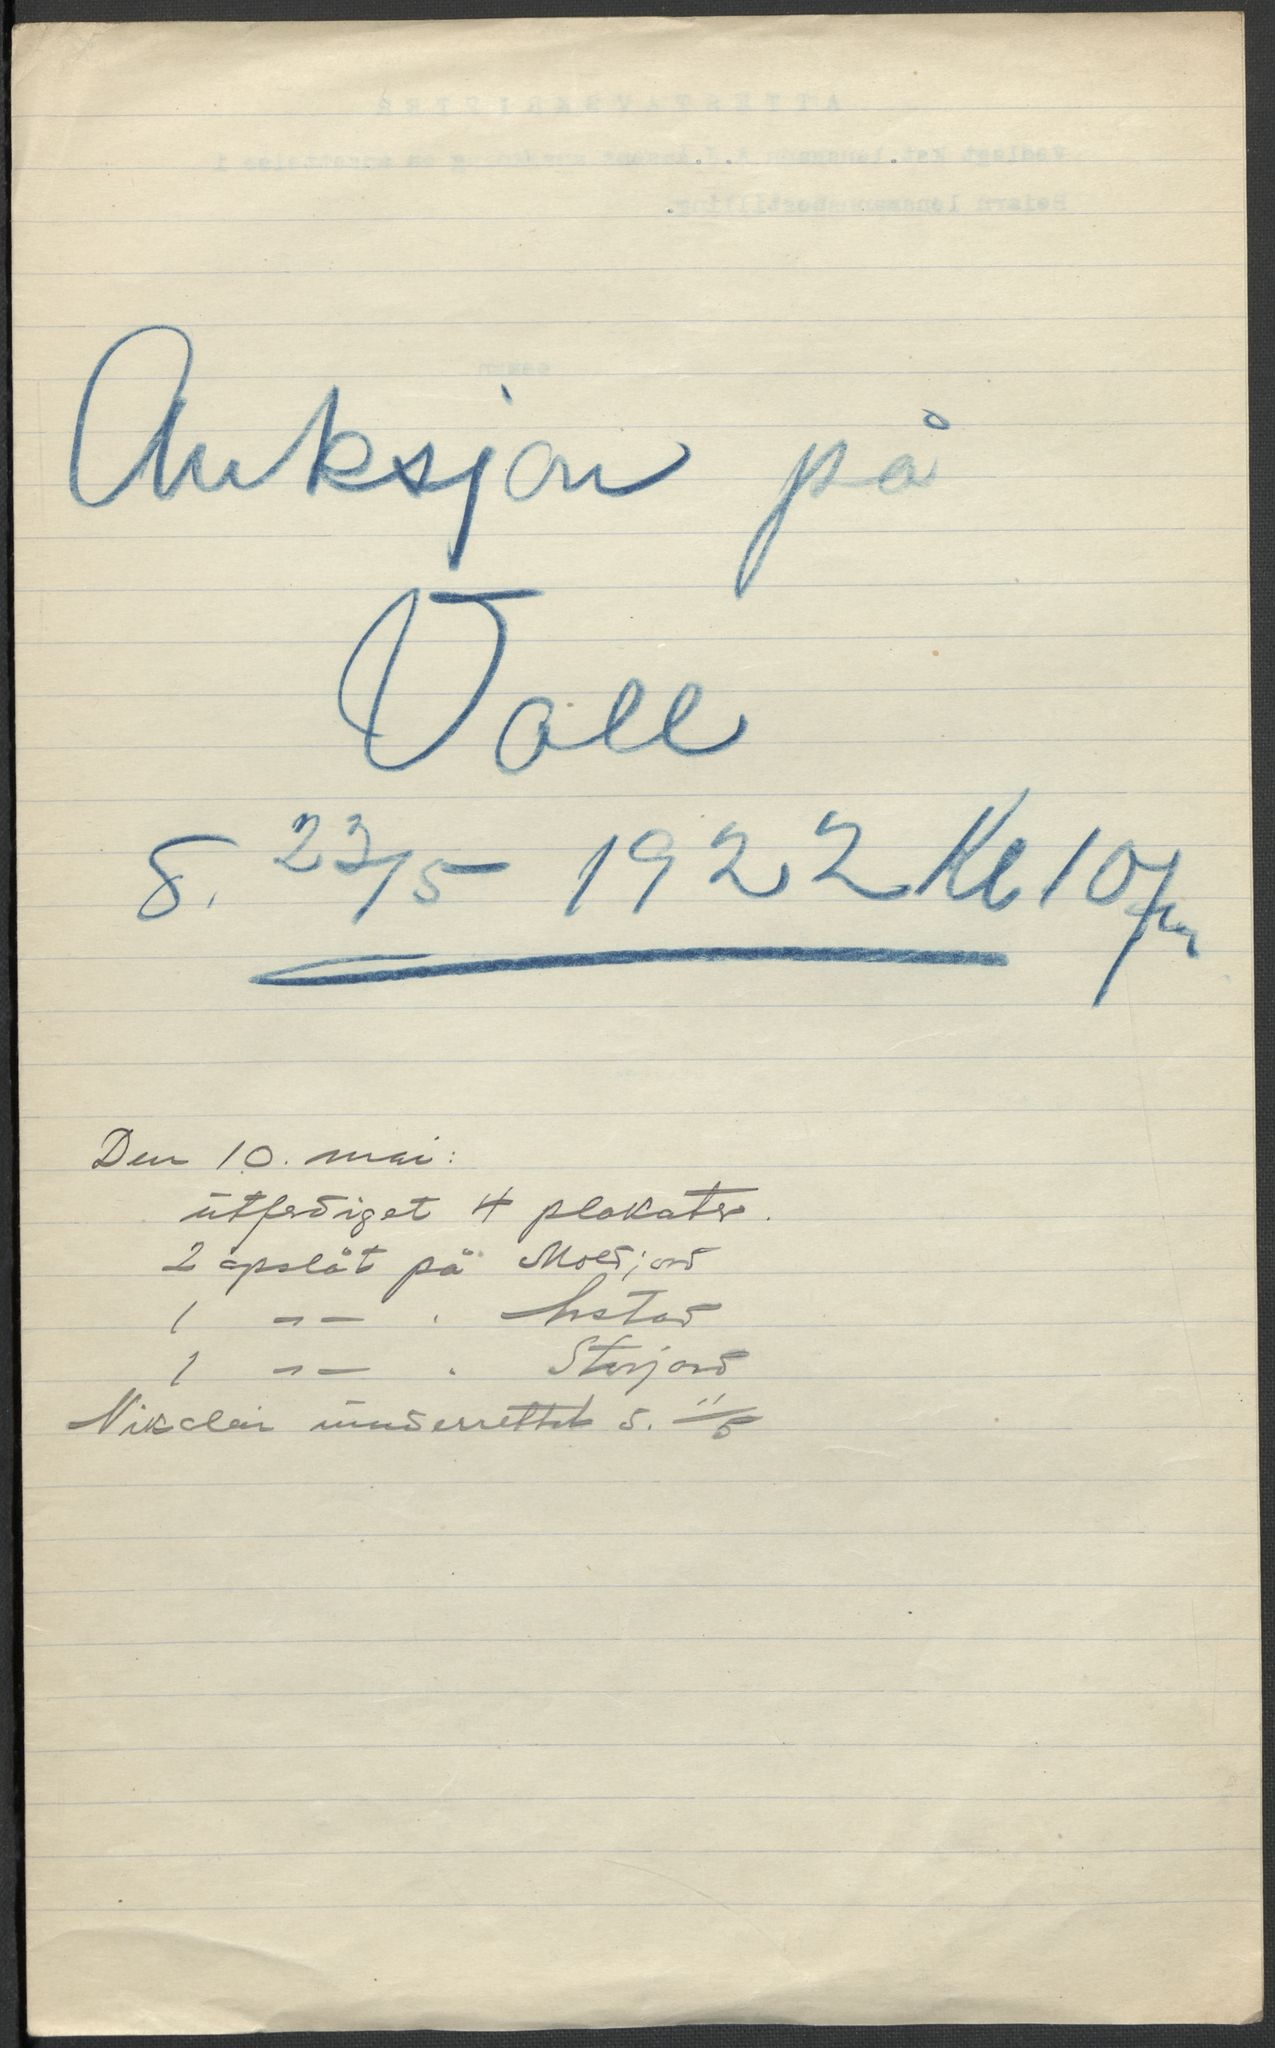 Auksjon på
Voll
d. 22/5 1922 Kl 10 fm
Den 10. mai:
utferdiget 4 plakater.
2 opslåt på Moldjord
1 -"- " 
1 -"- " Storjord
Nikolai underrettet d. 11/5